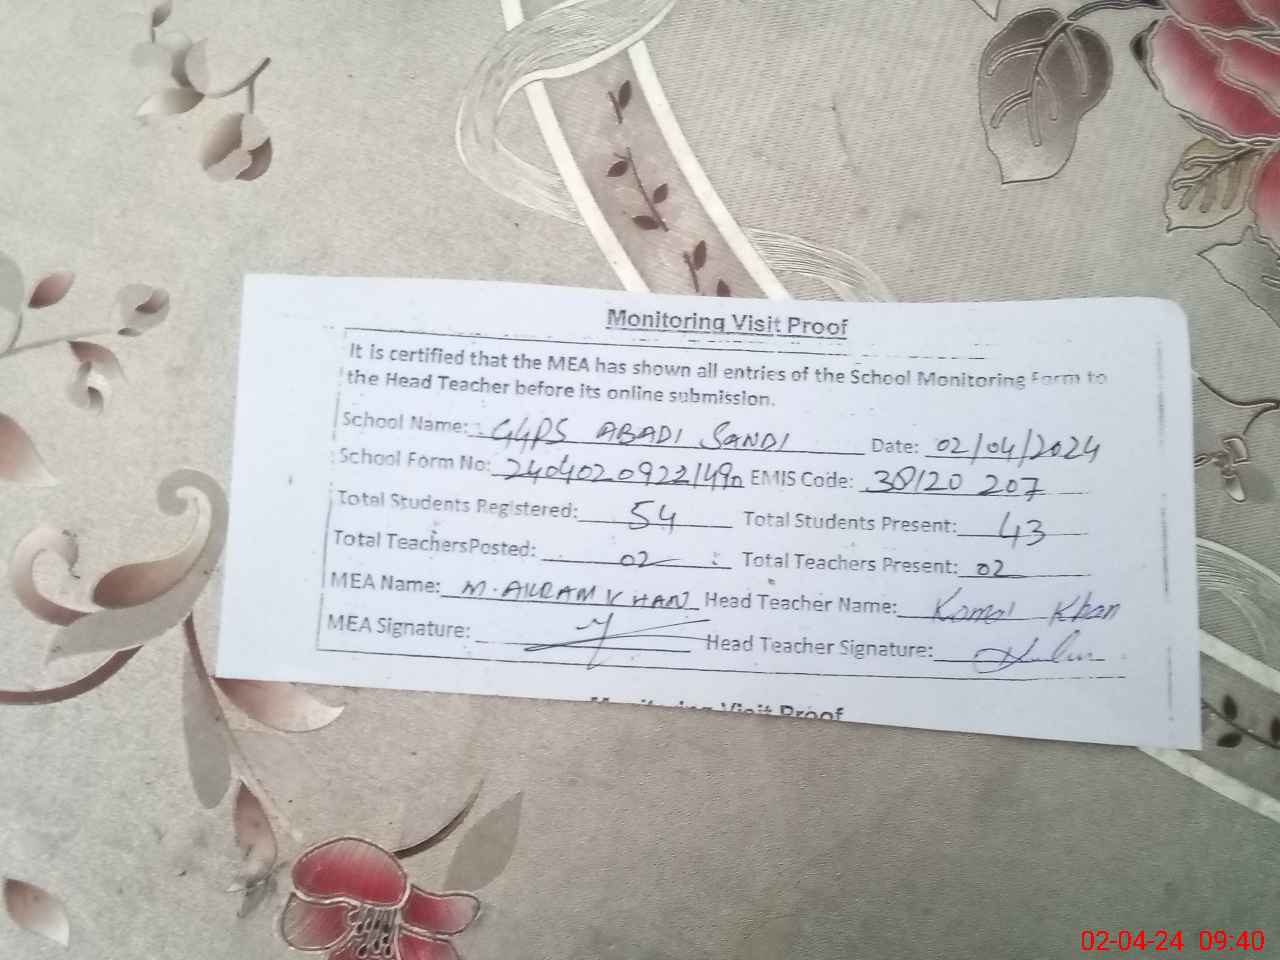 Monitoring Visit Proof
It is certified that the MEA has shown all entries of the School Monitoring Form to
the Head Teacher before its online submission.
School Name: GGPS ABADI SANDI Date: 02/04/2024
School Form No: EMIS Code: 38120 207
Total Students Registered: 54 Total Students Present: 43
Total TeachersPosted: 02 Total Teachers Present: 02
MEA Name: M. AKRAM KHAN Head Teacher Name: Komal Khan
MEA Signature: Head Teacher Signature:
Monitoring Visit Proof
02-04-24 09:40